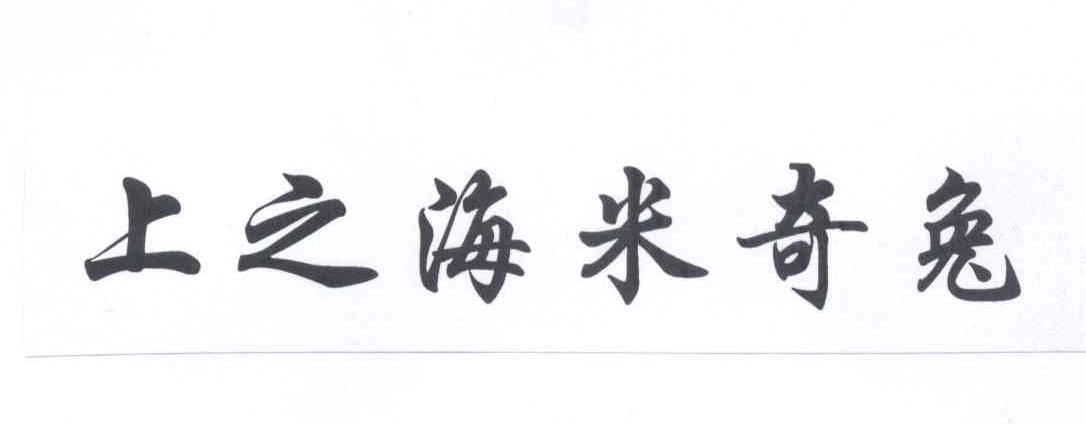 上之海米奇兔